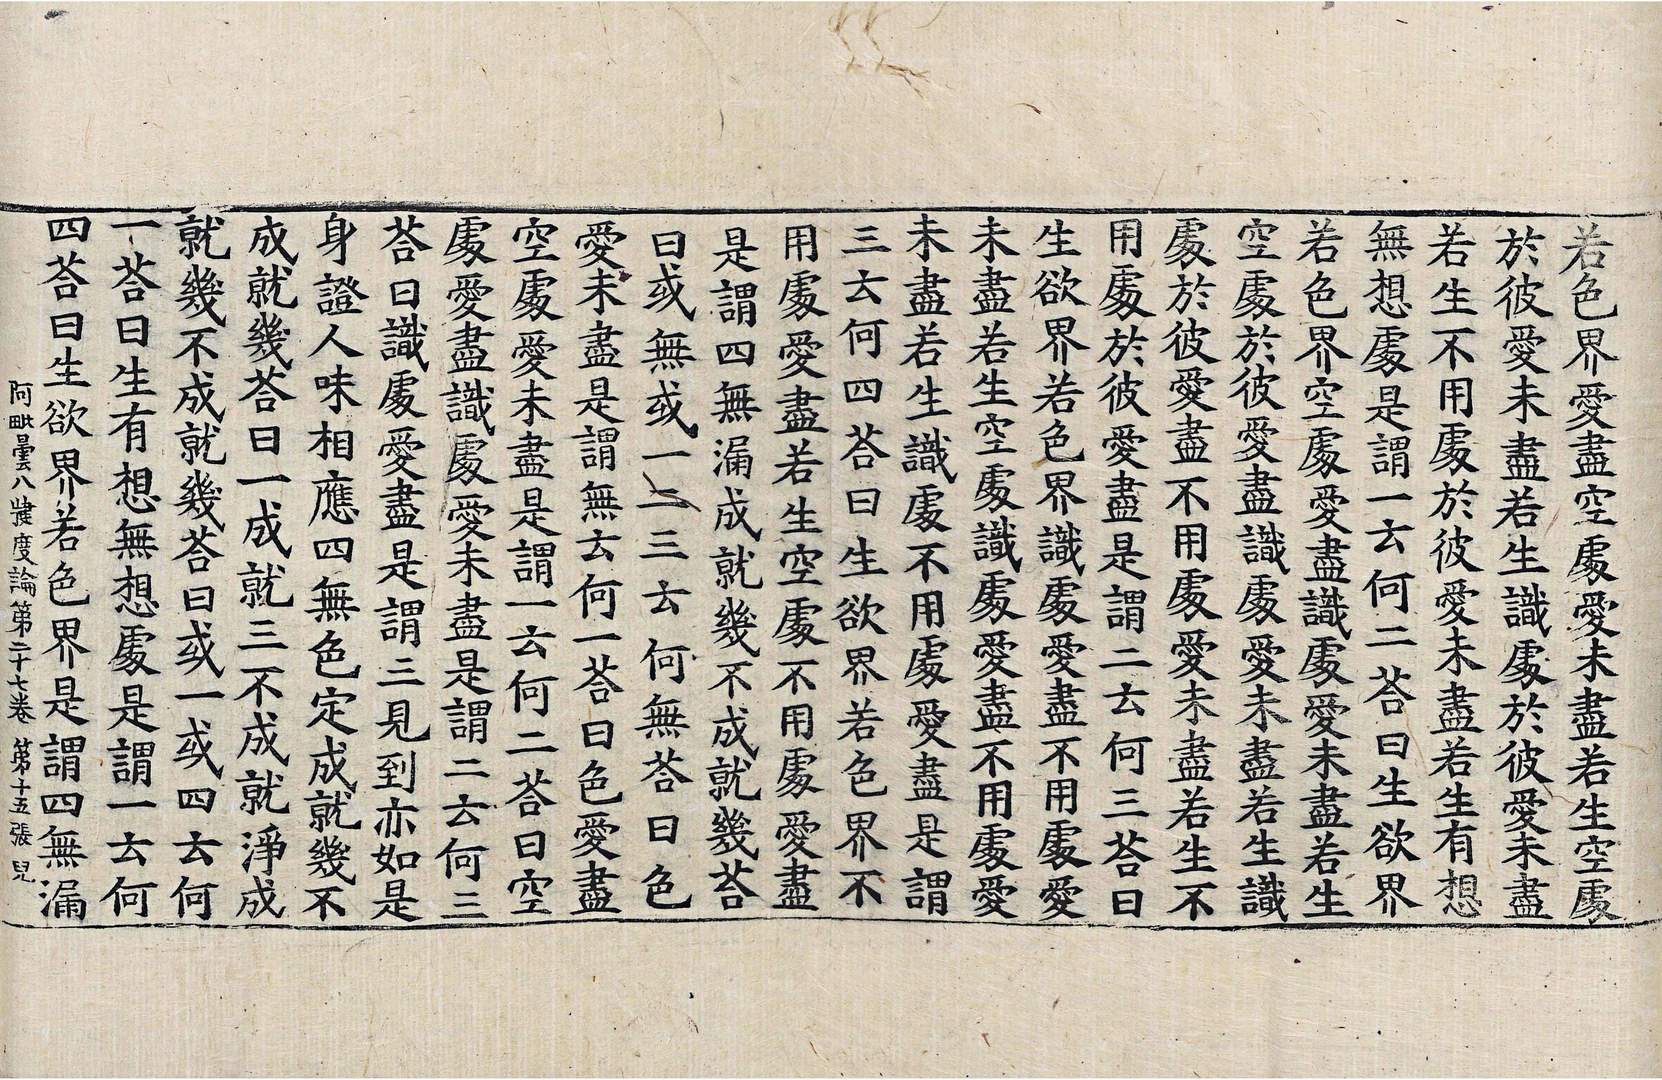 若色界愛盡空處愛未盡若生空處
於彼愛未盡若生識處於彼愛未盡
若生不用處於彼愛未盡若生有想
無想處是謂一云何二荅曰生欲界
若色界空處愛盡識處愛未盡若生
空處於彼愛盡識處愛未盡若生識
處於彼愛盡不用處愛未盡若生不
用處於彼愛盡是謂二云何三荅曰
生欲界若色界識處愛盡不用處愛
未盡若生空處識處愛盡不用處愛
未盡若生識處不用處愛盡是謂
三云何四荅曰生欲界若色界不
用處愛盡若生空處不用處愛盡
是謂四無漏成就幾不成就幾荅
曰或無或一二三云何無荅曰色
愛未盡是謂無云何一荅曰色愛盡
空處愛未盡是謂一云何二荅曰空
處愛盡識處愛未盡是謂二云何三
荅曰識處愛盡是謂三見到亦如是
身證人味相應四無色定成就幾不
成就幾荅曰一成就三不成就淨成
就幾不成就幾荅曰或一或四云何
一荅曰生有想無想處是謂一云何
四荅曰生欲界若色界是謂四無漏
阿毗曇八犍度論第二十七卷 第十五張 皃